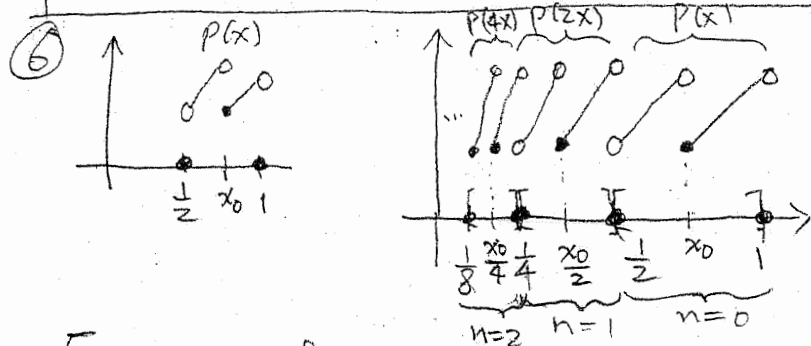 6
P(x)
1/2 x₀ 1
P(4x) P(2x) P(x)
...
1/8 x₀/4 1/4 x₀/2 1/2 x₀ 1
n=2 n=1 n=0